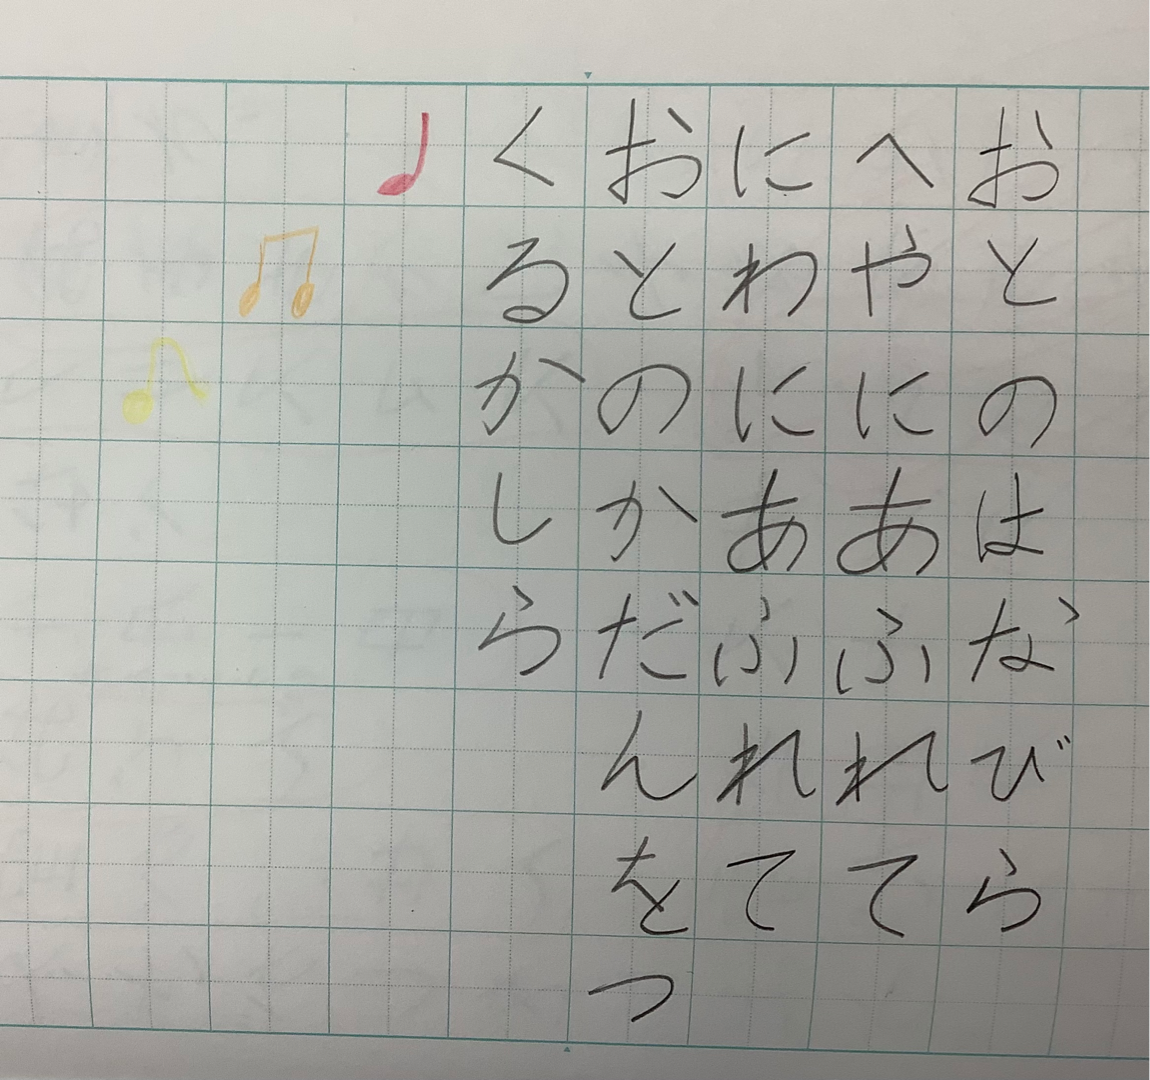 おとのはなびら
へやにあふれて
にわにあふれて
おとのかだんをつ
くるかしら